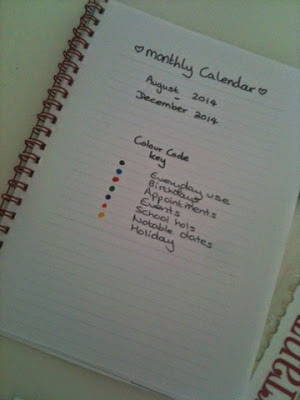 ♡monthly Calendar♡
August 2014
-
December 2014
Colour Code
Key
Everyday use
Birthdays
Appointments
Events
School hols
Notable dates
Holiday